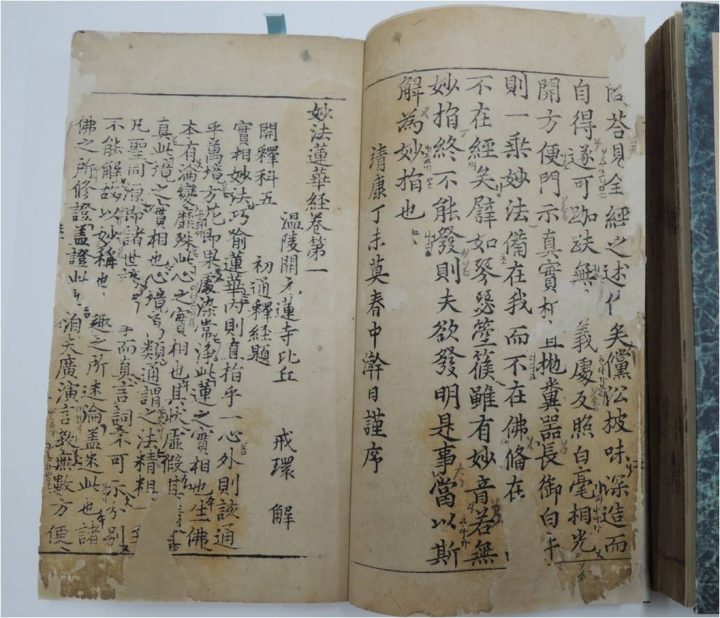 荅見全經之述作矣儻於披味深造而
自得遂可跏趺無義處反照白毫相光
開方便門示真實相且拋糞器長御白牛
則一乘妙法備在我而不在佛脩在
不在經矣譬如琴瑟箜篌雖有妙音若無
妙指終不能發則夫欲發明是事當以斯
解為妙指也
清康丁未莫春中澣日謹序
妙法蓮華經卷第一
溫陵開元蓮寺比丘 戒環 解
開釋科五 初通釋經題
實相妙法巧喻蓮華內則直指乎一心外則該通
乎萬境方花即果處染常淨此蓮之實相也生佛
本有淪變靡殊此心之實相也其狀虛假其
真此境之實相也心境萬類通謂之法精粗一
凡聖同源即諸世 而真言詞不可示分別
不能解故以妙稱也 趣之所迷淪蓋迷此也諸
佛之所修證蓋證此 洎夫廣演言教無數方便